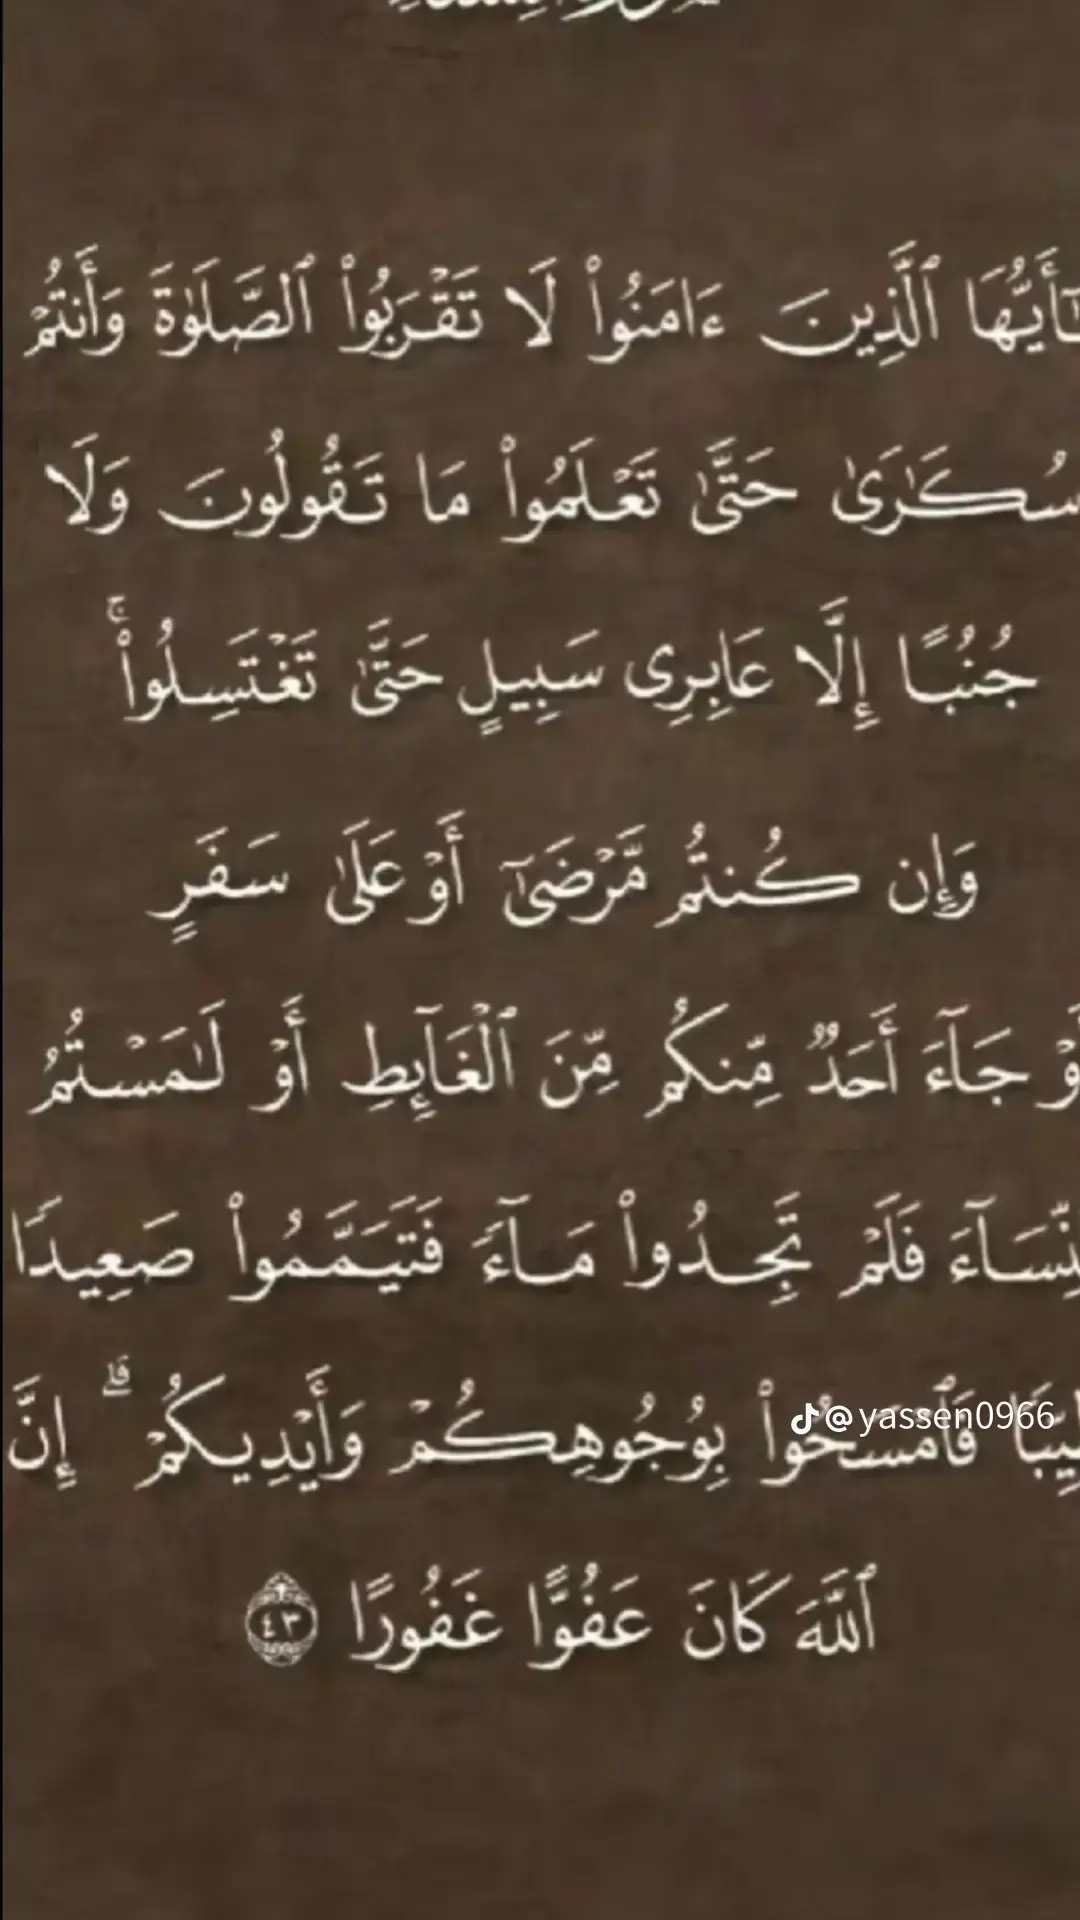 يَٰٓأَيُّهَا ٱلَّذِينَ ءَامَنُوا۟ لَا تَقْرَبُوا۟ ٱلصَّلَوٰةَ وَأَنتُمْ
سُكَٰرَىٰ حَتَّىٰ تَعْلَمُوا۟ مَا تَقُولُونَ وَلَا
جُنُبًا إِلَّا عَابِرِى سَبِيلٍ حَتَّىٰ تَغْتَسِلُوا۟ ۚ
وَإِن كُنتُم مَّرْضَىٰٓ أَوْ عَلَىٰ سَفَرٍ
أَوْ جَآءَ أَحَدٌ مِّنكُم مِّنَ ٱلْغَآئِطِ أَوْ لَٰمَسْتُمُ
ٱلنِّسَآءَ فَلَمْ تَجِدُوا۟ مَآءً فَتَيَمَّمُوا۟ صَعِيدًا
طَيِّبًا فَٱمْسَحُوا۟ بِوُجُوهِكُمْ وَأَيْدِيكُمْ ۗ إِنَّ
@yassen0966
ٱللَّهَ كَانَ عَفُوًّا غَفُورًا ٤٣